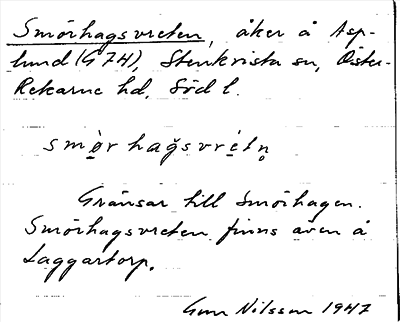 Smörhagsvreten, åker å Asp-
lund (G 74), Stenkvista sn, Öster-
Rekarne hd, Söd l.
smø̣r hag̀svrétn̥
Gränsar till Smörhagen.
Smörhagsvreten finns även å
Laggartorp.
Gun Nilsson 1947